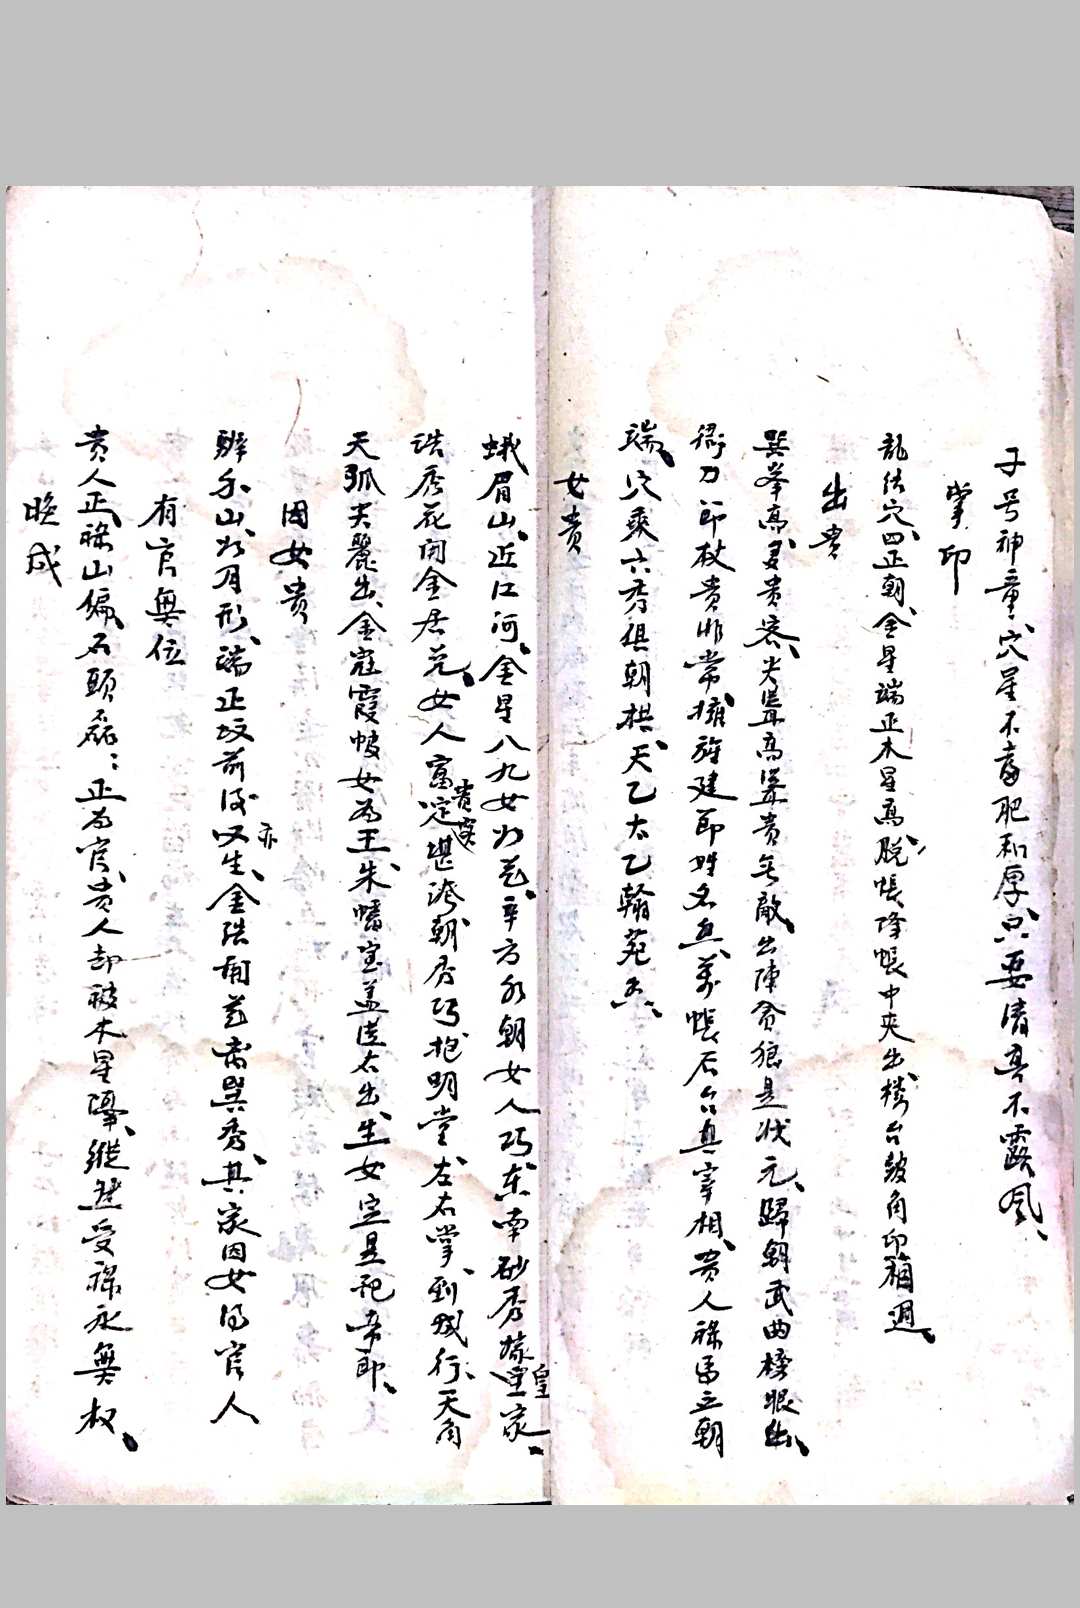 子号神童、穴星不高肥和厚、只要清其不露風、
掌印
龍結穴、四正朝、金星端正木星高、脫帳降帳中夾出、樓台鼓角印箱週、
出貴
巽峯高、貴客、尖聳高聳貴無敵、出陣貪狼是狀元、歸朝武曲榜眼出、
衙刀節杖貴非常、擁旌建節姓名、帳石台真宰相、貴人祿馬立朝
端、穴乘六秀祖朝拱、天乙太乙翰苑、
女貴
蛾眉山、近江河、金星八九女如花、辛方水朝女人巧、東南砂秀嫁皇家、
誥秀花開金居兌、女人富貴定堪誇、朝秀巧抱明堂、左右掌、到城行、天角
天弧尖麗出、金冠霞帔女為王、朱幡宝盖達右出、生女定是配帝郎、
因女貴
辦水山、如月形、端正坟前後又亦生、金誥兼巽秀、其家因女得官人
有官無位
貴人正、祿山偏、石頭磊：正為官、貴人却被木星障、縱然受祿永無权、
晚成